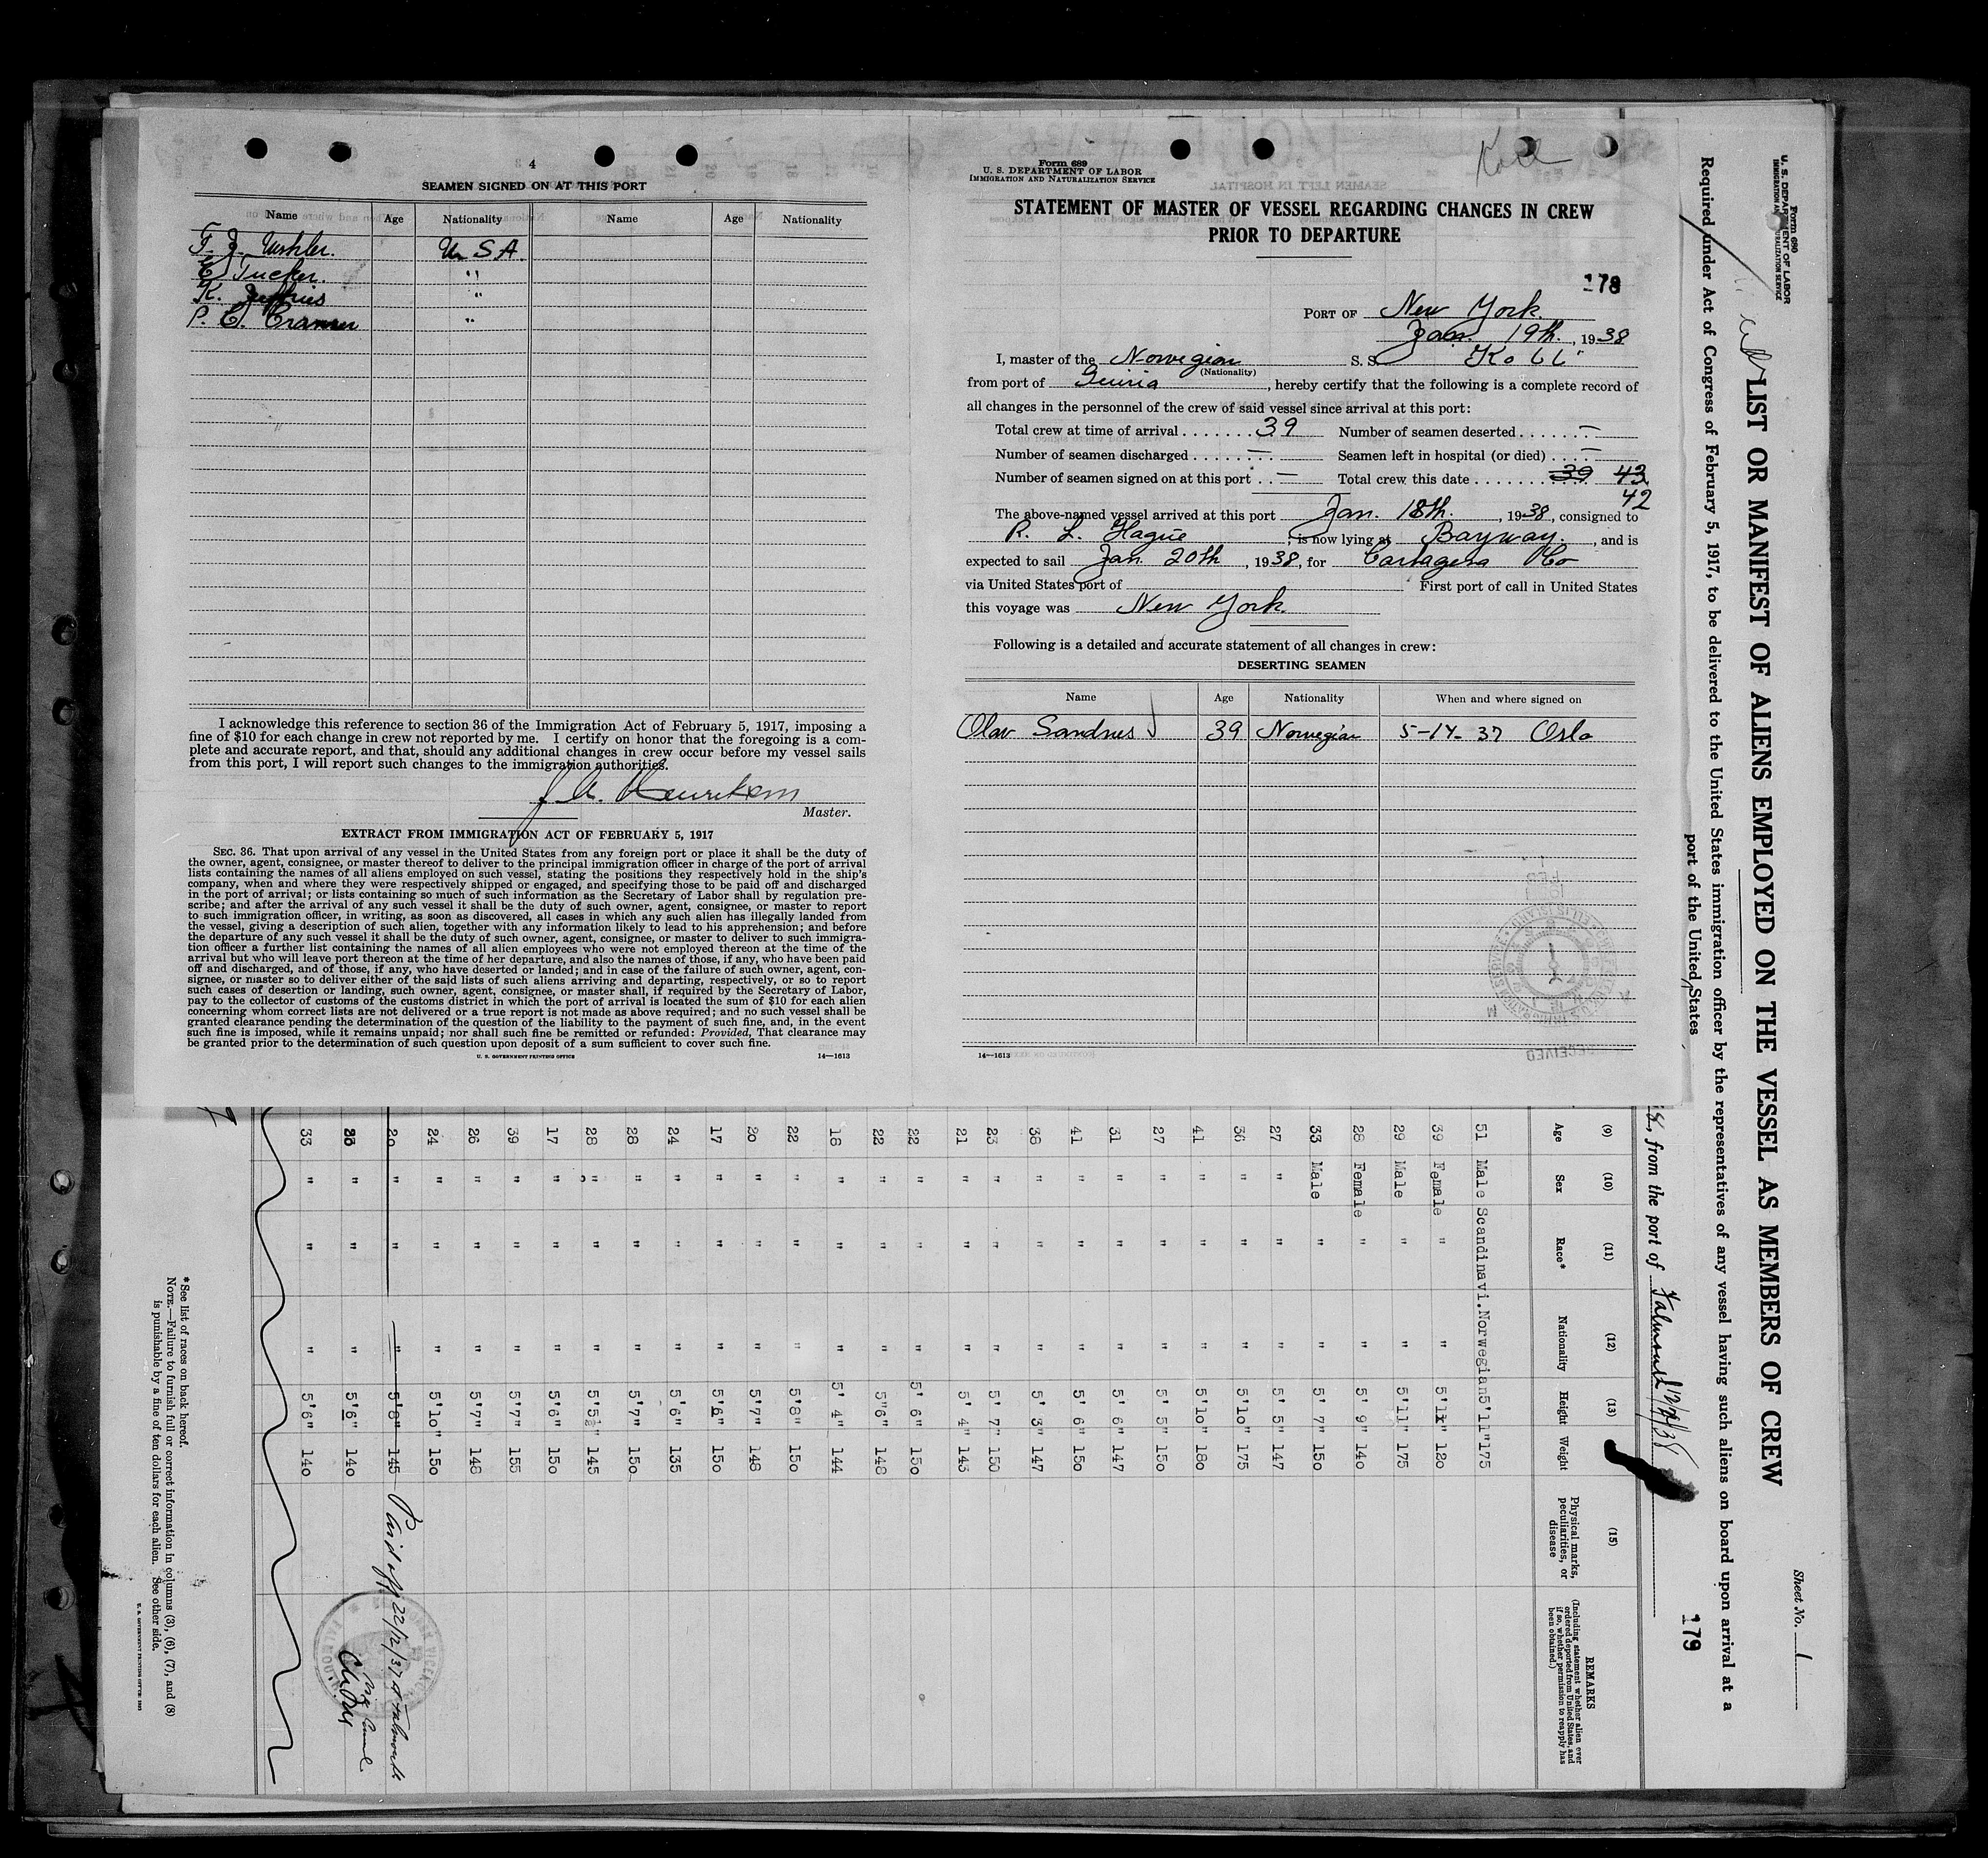 4
SEAMEN SIGNED ON AT THIS PORT
Name Age Nationality Name Age Nationality
F. J. U. S A.
E. Tucker. "
K. Jeffries "
P. C. Cranmer "
I acknowledge this reference to section 36 of the Immigration Act of February 5, 1917, imposing a
fine of $10 for each change in crew not reported by me. I certify on honor that the foregoing is a com-
plete and accurate report, and that, should any additional changes in crew occur before my vessel sails
from this port, I will report such changes to the immigration authorities.
Master.
EXTRACT FROM IMMIGRATION ACT OF FEBRUARY 5, 1917
SEC. 36. That upon arrival of any vessel in the United States from any foreign port or place it shall be the duty of
the owner, agent, consignee, or master thereof to deliver to the principal immigration officer in charge of the port of arrival
lists containing the names of all aliens employed on such vessel, stating the positions they respectively hold in the ship's
company, when and where they were respectively shipped or engaged, and specifying those to be paid off and discharged
in the port of arrival; or lists containing so much of such information as the Secretary of Labor shall by regulation pre-
scribe; and after the arrival of any such vessel it shall be the duty of such owner, agent, consignee, or master to report
to such immigration officer, in writing, as soon as discovered, all cases in which any such alien has illegally landed from
the vessel, giving a description of such alien, together with any information likely to lead to his apprehension; and before
the departure of any such vessel it shall be the duty of such owner, agent, consignee, or master to deliver to such immigra-
tion officer a further list containing the names of all alien employees who were not employed thereon at the time of the
arrival but who will leave port thereon at the time of her departure, and also the names of those, if any, who have been paid
off and discharged, and of those, if any, who have deserted or landed; and in case of the failure of such owner, agent, con-
signee, or master so to deliver either of the said lists of such aliens arriving and departing, respectively, or so to report
such cases of desertion or landing, such owner, agent, consignee, or master shall, if required by the Secretary of Labor,
pay to the collector of customs of the customs district in which the port of arrival is located the sum of $10 for each alien
concerning whom correct lists are not delivered or a true report is not made as above required; and no such vessel shall be
granted clearance pending the determination of the question of the liability to the payment of such fine, and, in the event
such fine is imposed, while it remains unpaid; nor shall such fine be remitted or refunded: Provided, That clearance may
be granted prior to the determination of such question upon deposit of a sum sufficient to cover such fine.
U. S. GOVERNMENT PRINTING OFFICE 14—1613
Form 689
U. S. DEPARTMENT OF LABOR
IMMIGRATION AND NATURALIZATION SERVICE
STATEMENT OF MASTER OF VESSEL REGARDING CHANGES IN CREW
PRIOR TO DEPARTURE
178
PORT OF New York.
Jan. 19th., 1938
I, master of the Norwegian S. S. Koll"
(Nationality)
from port of Guiria, hereby certify that the following is a complete record of
all changes in the personnel of the crew of said vessel since arrival at this port:
Total crew at time of arrival . . . . . . . 39 Number of seamen deserted . . . . . . . —
Number of seamen discharged . . . . . . . — Seamen left in hospital (or died) . . . . —
Number of seamen signed on at this port . . — Total crew this date . . . . . . . . 39 43
42
The above-named vessel arrived at this port Jan. 18th., 1938, consigned to
R. L. Hague, is now lying at Bayway., and is
expected to sail Jan. 20th, 1938, for Cartagena Co
via United States port of First port of call in United States
this voyage was New York.
Following is a detailed and accurate statement of all changes in crew:
DESERTING SEAMEN
Name Age Nationality When and where signed on
Olav Sandnes 39 Norwegian 5-14-37 Oslo
14—1613
Form 680
U. S. DEPARTMENT OF LABOR
IMMIGRATION AND NATURALIZATION SERVICE
Sheet No. 1
LIST OR MANIFEST OF ALIENS EMPLOYED ON THE VESSEL AS MEMBERS OF CREW
Required under Act of Congress of February 5, 1917, to be delivered to the United States immigration officer by the representatives of any vessel having such aliens on board upon arrival at a
port of the United States
179
, from the port of Falmouth
(9) (10) (11) (12) (13) (15)
Age Sex Race* Nationality Height Weight Physical marks, peculiarities, or disease REMARKS
(Including statement whether alien ever ordered deported from United States, and if so, whether permission to reapply has been obtained.)
51 Male Scandinavi. Norwegian 5'11" 175
39 Female " " 5'1" 120
29 Male " " 5'11" 175
28 Female " " 5' 9" 140
33 Male " " 5' 7" 150
27 " " " 5' 5" 147
36 " " " 5'10" 175
41 " " " 5'10" 180
27 " " " 5' 5" 150
31 " " " 5' 6" 147
41 " " " 5' 6" 150
38 " " " 5' 3" 147
23 " " " 5' 7" 150
21 " " " 5' 4" 143
22 " " " 5' 6" 150
22 " " " 5"6" 148
18 " " " 5' 4" 144
22 " " " 5'8" 150
20 " " " 5'7" 148
17 " " " 5'6" 150
24 " " " 5'6" 135
28 " " " 5'7" 150
28 " " " 5'5½" 145
17 " " " 5'6" 150
39 " " " 5'7" 155
26 " " " 5'7" 148
24 " " " 5'10" 150
20 " " " 5'8" 145 Paid off 22/12/37 at Falmouth
" " " 5'6" 140
33 " " " 5'6" 140
*See list of races on back hereof.
NOTE.—Failure to furnish full or correct information in columns (3), (6), (7), and (8)
is punishable by a fine of ten dollars for each alien. See other side.